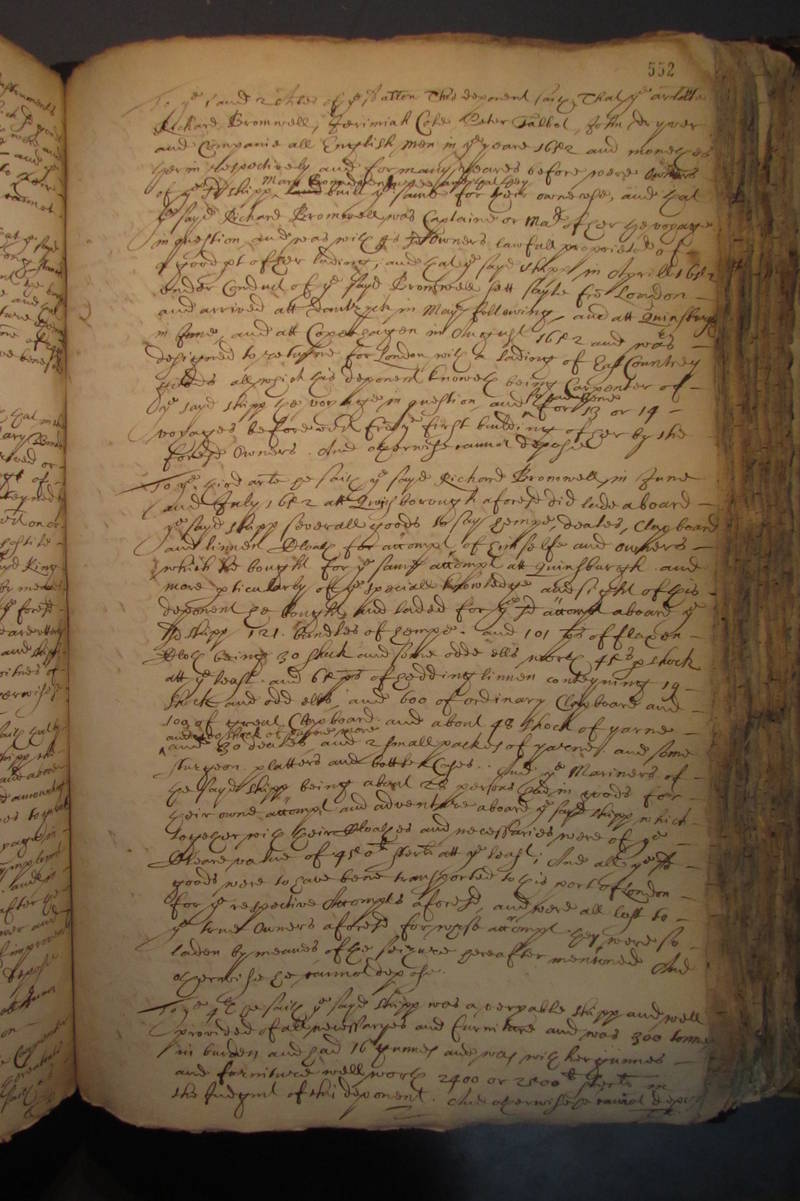 552
To ye 1 and 2 Arles of ye sd allon This deponent saith That ye arlate
Richard Bromwell, Jerimiah Cole Peter Talbot, John Dryver
and Companie all English men in ye yeare 1652 and moneths
therin respectively and for many yeares before were Owners
of ye sd shipp, and built ye same for their owne use, and that
ye sayd Richard Bromwell was Captaine or Mar of her ye voyage
in question and was with ye sd Owners lawfull proprietor of
a good pt of her lading, and that ye sayd shipp in Aprill 1652
under Conduct of ye sayd Bromwell sett sayle from London
and arrived att Dantzych in May following, and att Quinsburgh
in June, and att Copenhagen in August 1652 and was
designed to returne for London with a lading of East Countrey
goods all which this deponent knoweth being Carpenter of
ye sayd shipp ye voyage in question and for 13 or 14
voyages before with her ye first building of her by the
foresd Owners. And otherwise cannot depose
To ye third arte he saith ye sayd Richard Bromwell in June
and July 1652 att Quinsborough aforesd did lade aboard
ye sayd shipp severall goods to say hempe, deales, Clapboard
and linnen Cloath for accompt of himselfe and owners
which he bought for ye same accompt att Quinsburgh and
more pticularly of ye speciall knowledge and sight of this
deponent he bought and laded for ye sd accompt aboard ye
sd shipp 121 bundles of hempe. and 101 ps of flaxen
Cloth being 30 shock and some odde ells worth 45s p shock
att ye least and 65 ps of bedding linnen conteyning 19
shock and odd ells, and 600 of ordinary Clapboard and
100 of great Clapboard and about 48 shock of yarne
and shock of yarne more
and 30 deales, and 2 small packes of yarne, and some
sturgeon platters and bottle Cases. And ye Mariners of
the sayd shipp being about 28 persons had in goods for
their owne accompt and adventure aboard ye sayd shipp which
together with their Cloathes and necessaries were of ye
Cleare value of 450li sterls att ye least; And all ye sd
goods were to have bene transported to this port of London
for ye respective Accompts aforesd, and were all lost to
ye true Owners aforesd for whose accompt they were so
laden by meanes of the seizure hereafter mentioned And
otherwise he cannot depose.
To ye 4th he saith ye sayd shipp was a very able shipp and well
provided of all necessaryes and furniture and was 300 tonnes
in burden and had 16 gunnes and was with her gunnes
and furniture well worth 2400 or 2500li sterls in
the Judgmt of this deponent. And otherwise he cannot depose